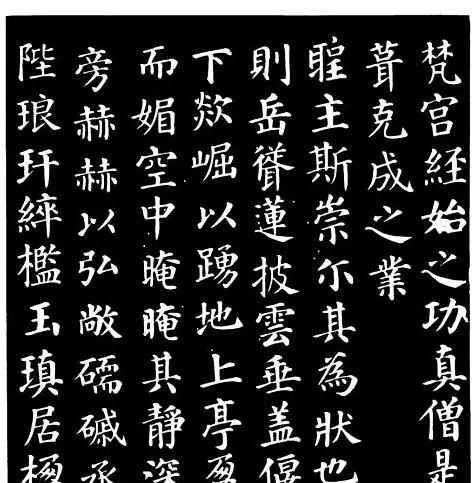 梵宫經始之功真僧是
葺克成之業
聖主斯崇尒其為狀也
則岳聳蓮披雲垂盖偃
下欻崛以踴地上亭盈
而媚空中晻晻其靜深
旁赫赫以弘敞礝磩承
陛琅玕綷檻玉瑱居楹